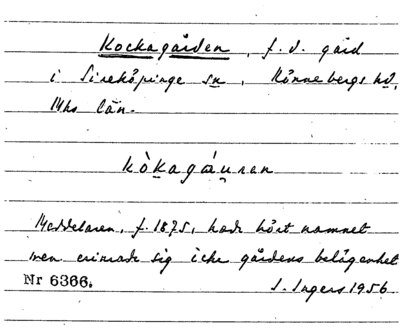 Kockagården, f. d. gård
i Sireköpinge sn, Rönnebergs hd,
Mhs län.
kòkagáu̯ṇan
Meddelaren, f. 1875, hade hört namnet
men erinrade sig icke gårdens belägenhet
Nr 6366. I. Ingers 1956